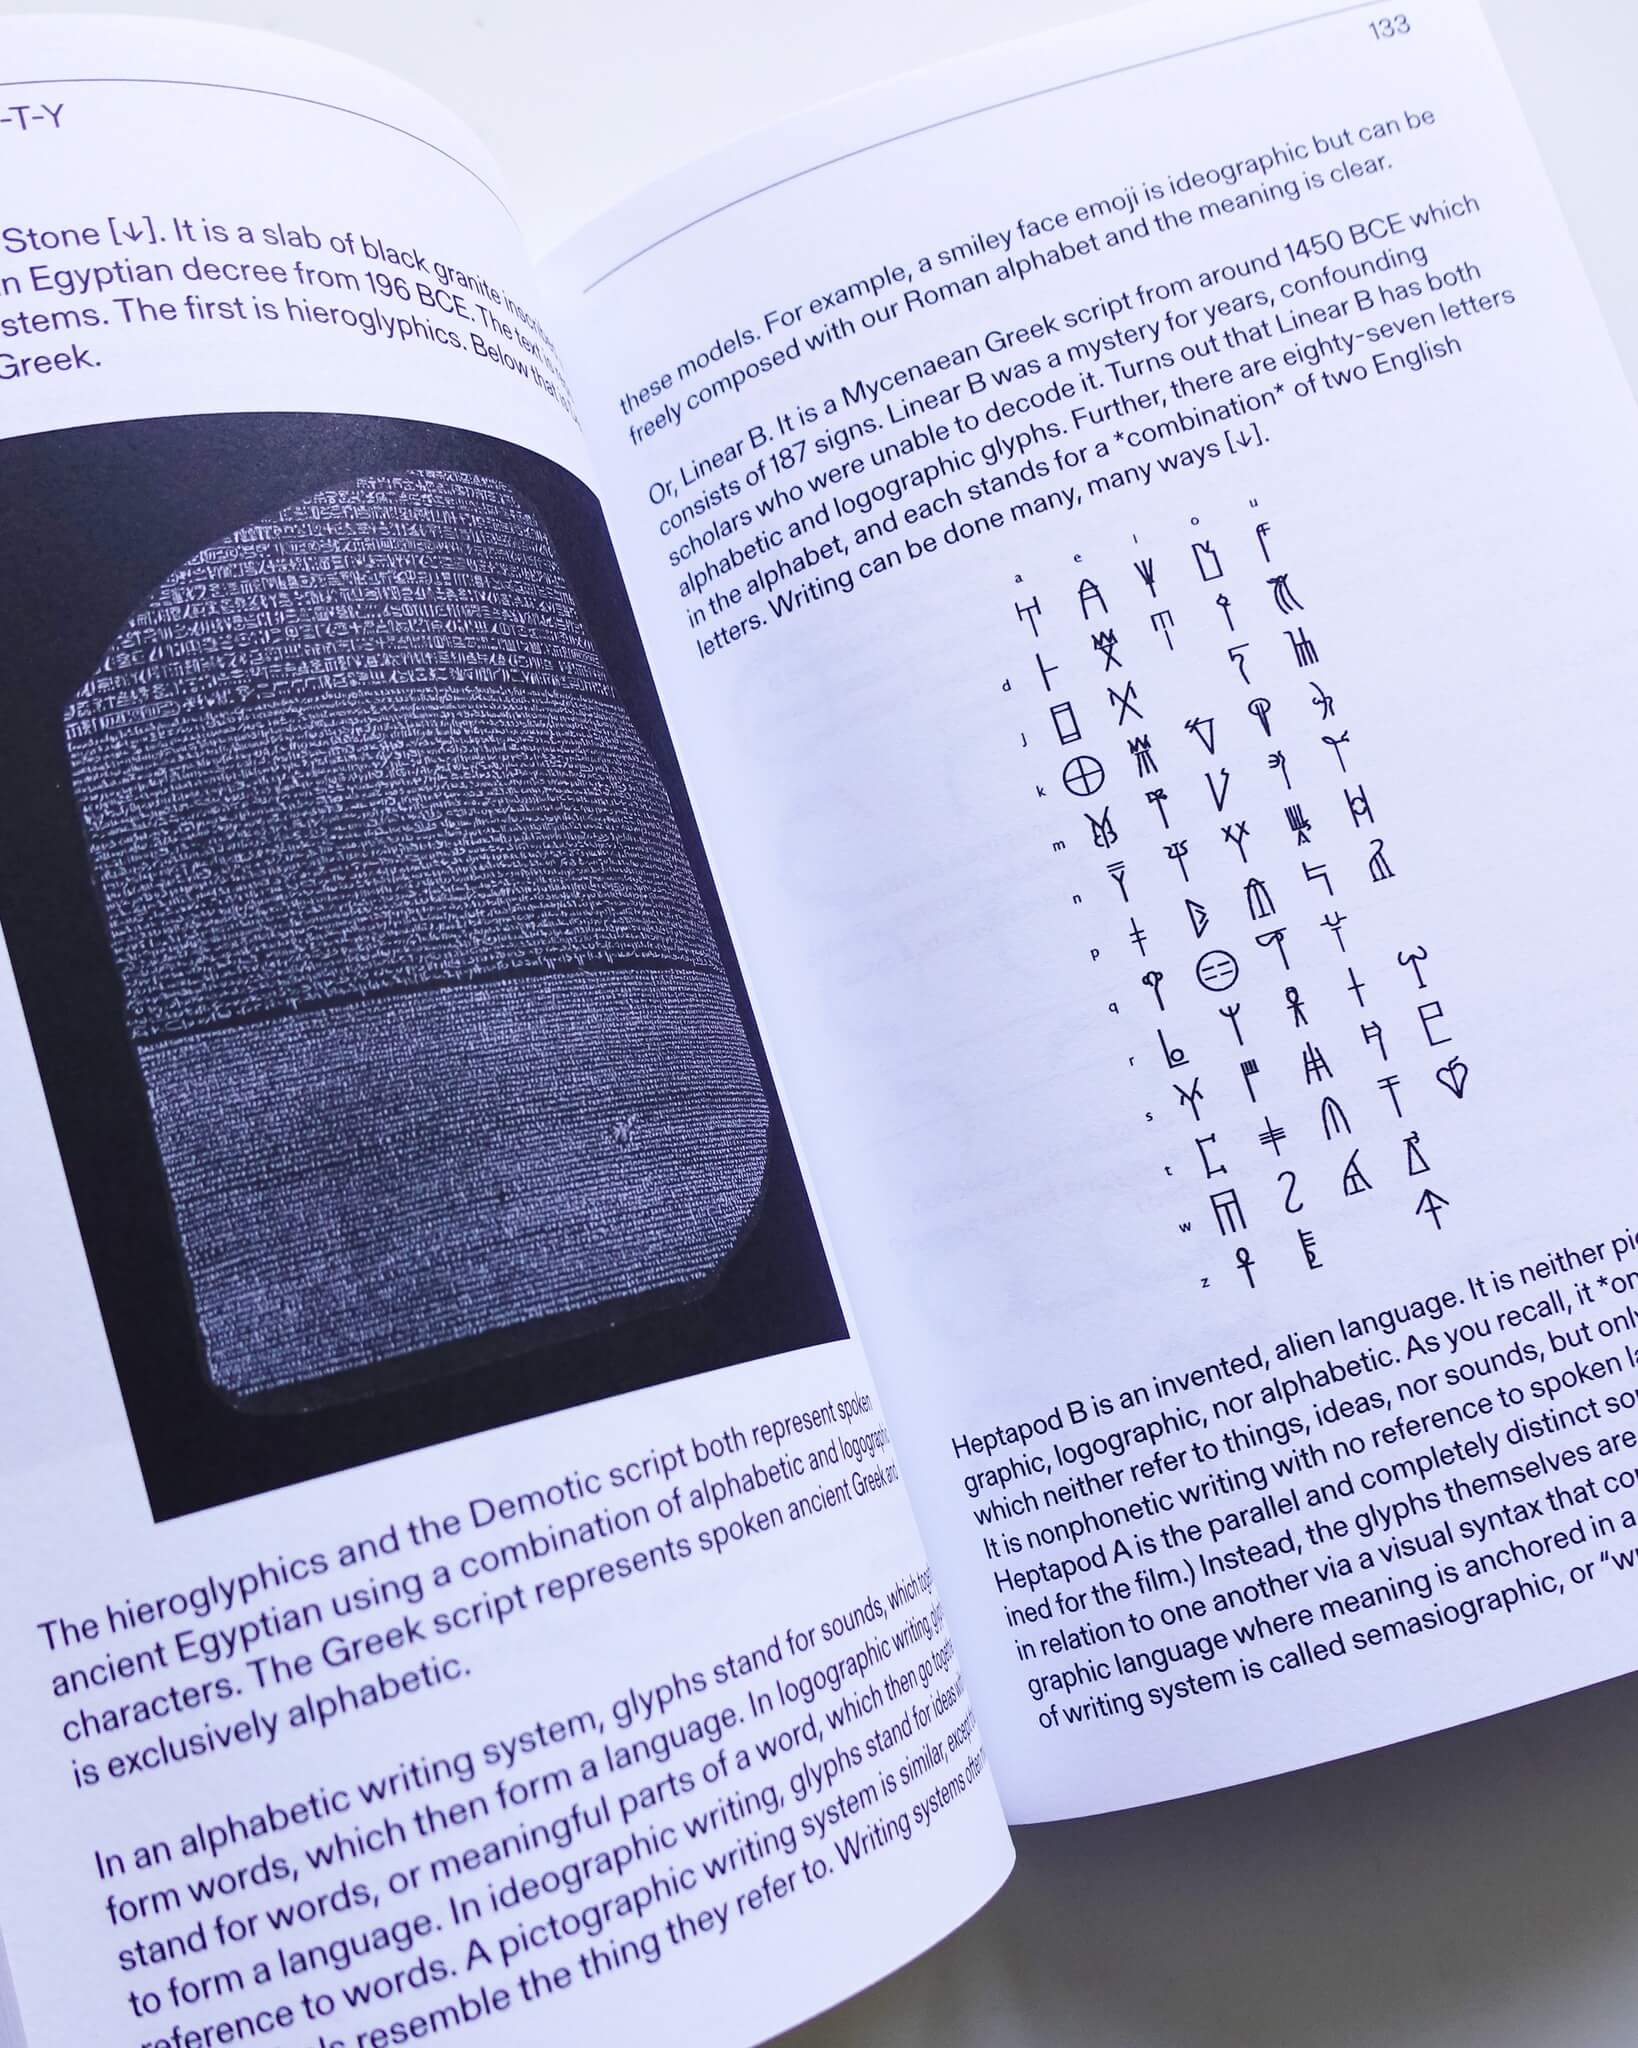 -T-Y
Stone [↓]. It is a slab of black granite
n Egyptian decree from 196 BCE. The text is
stems. The first is hieroglyphics. Below that is
Greek.
The hieroglyphics and the Demotic script both represent spoken
ancient Egyptian using a combination of alphabetic and logographic
characters. The Greek script represents spoken ancient Greek and
is exclusively alphabetic.
In an alphabetic writing system, glyphs stand for sounds, which
form words, which then form a language. In logographic writing,
stand for words, or meaningful parts of a word, which then go together
to form a language. In ideographic writing, glyphs stand for ideas
reference to words. A pictographic writing system is similar, except
resemble the thing they refer to. Writing systems often
133
these models. For example, a smiley face emoji is ideographic but can be
freely composed with our Roman alphabet and the meaning is clear.
Or, Linear B. It is a Mycenaean Greek script from around 1450 BCE which
consists of 187 signs. Linear B was a mystery for years, confounding
scholars who were unable to decode it. Turns out that Linear B has both
alphabetic and logographic glyphs. Further, there are eighty-seven letters
in the alphabet, and each stands for a *combination* of two English
letters. Writing can be done many, many ways [↓].
a e i o u
d
j
k
m
n
p
q
r
s
t
w
z
Heptapod B is an invented, alien language. It is neither
graphic, logographic, nor alphabetic. As you recall, it
which neither refer to things, ideas, nor sounds, but only
It is nonphonetic writing with no reference to spoken
Heptapod A is the parallel and completely distinct
ined for the film.) Instead, the glyphs themselves are
in relation to one another via a visual syntax that
graphic language where meaning is anchored in a
of writing system is called semasiographic, or